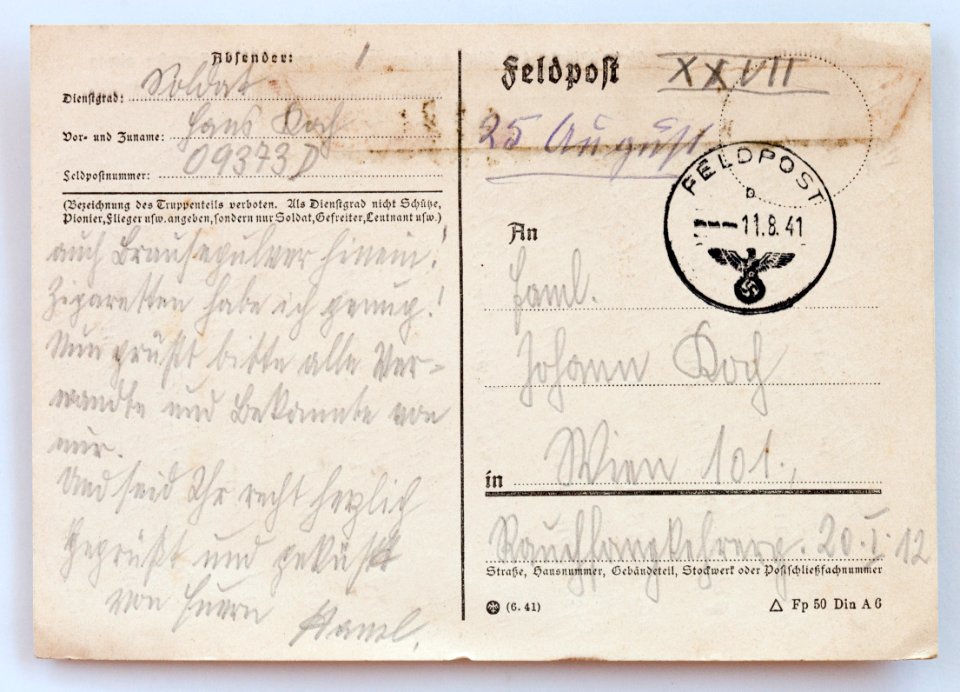 Absender:
Dienstgrad: Soldat
Vor- und Zuname: Hans Koch
Feldpostnummer: 09373 D
(Bezeichnung des Truppenteils verboten. Als Dienstgrad nicht Schütze,
Pionier, Flieger usw. angeben, sondern nur Soldat, Gefreiter, Leutnant usw.)
auch Brausepulver hinein!
Zigaretten habe ich genug!
Nun grüßt bitte alle Ver-
wandte und Bekannte von
mir.
Und seid Ihr recht herzlich
gegrüßt und geküßt
von Euern Hansl.
Feldpost XXVII
25 August
FELDPOST
b
11.8.41
An
Faml.
Johann Koch
in Wien 101.,
Rauchfangkehrerg. 20. I. 12
Straße, Hausnummer, Gebäudeteil, Stockwerk oder Postschließfachnummer
(6. 41)
Fp 50 Din A 6